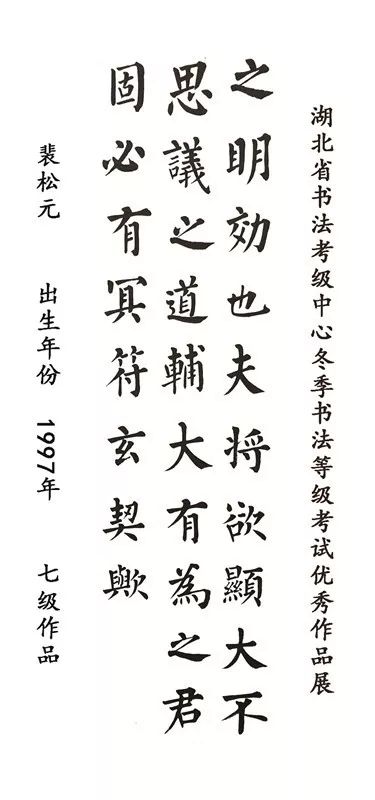 湖北省书法考级中心冬季书法等级考试优秀作品展
之明効也夫将欲顯大不
思議之道輔大有為之君
固必有冥符玄契歟
裴松元 出生年份 1997年 七级作品